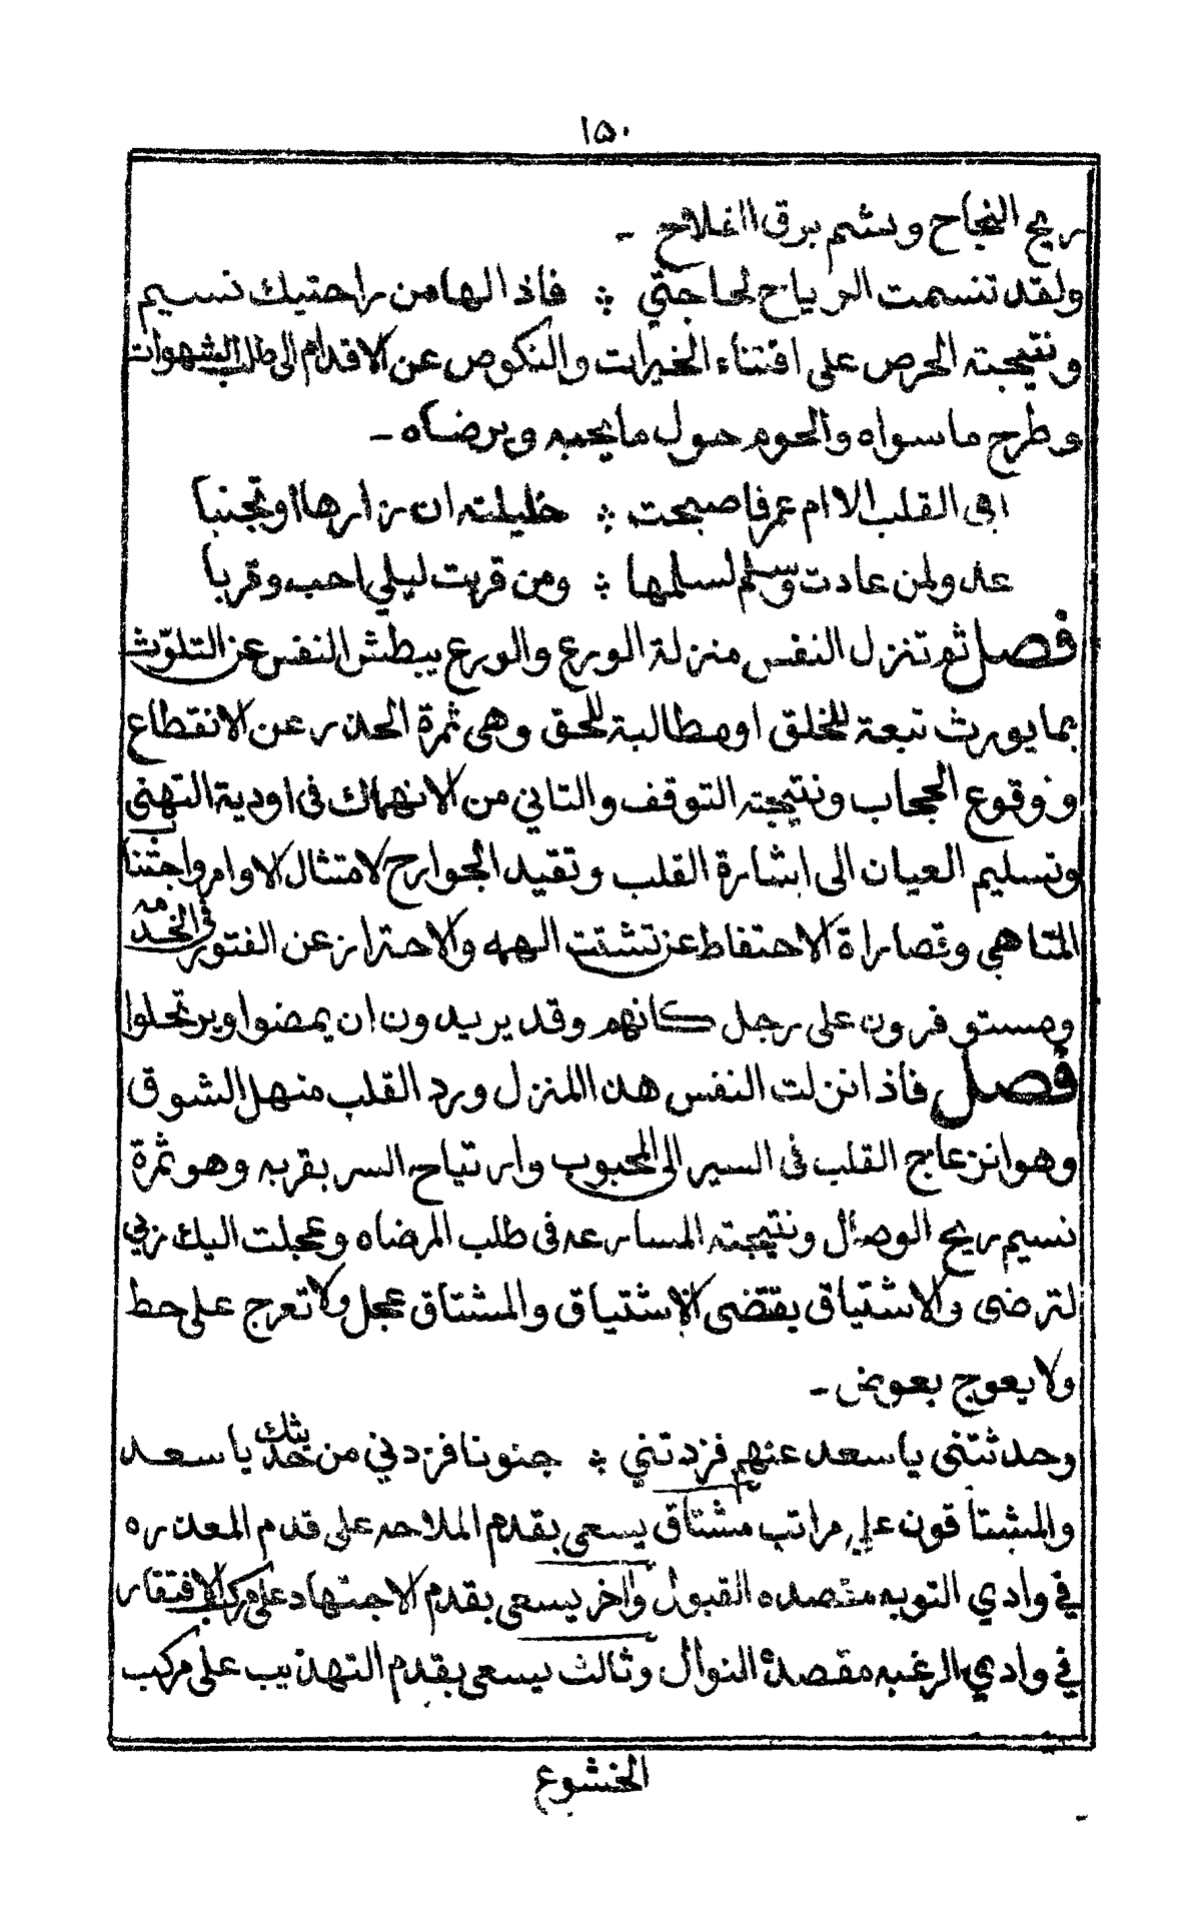 ١٥٠
ريح النجاح وشم برق الفلاح -
ولقد تنسمت الرياح لحاجتي ؞ فاذا لها من راحتيك نسيم
ونتيجته الحرص على اقتناء الخيرات والنكوص عن الاقدام الى طلب الشهوات
وطرح ما سواه والحوم حول ما يحبه ويرضاه -
ابى القلب الا ام عمر فاصبحت ؞ خليلته ان زارها او تجنبا
عدو لمن عادت وسلم لسلمها ؞ ومن قربت ليلي احب وقربا
فصل ثم تنزل النفس منزلة الورع والورع يبطش النفس عن التلوّث
بما يورث تبعة للخلق او مطالبة للحق وهى ثمرة الحذر عن الانقطاع
وقوع الحجاب ونتيجته التوقف والتاني من الانهماك فى اودية التهنى
وتسليم العيان الى اشارة القلب وتقيد الجوارح لامتثال الاوامر واجتناب
المناهي وقصاراة الاحتفاط عن تشتت الهمه والاحتراز عن الفتور فى الخدمه
ومستوفرون على رجل كانهم وقد يريدون ان يمضوا ويرتحلوا
فصل فاذا نزلت النفس هذا المنزل ورد القلب منهل الشوق
وهو انزعاج القلب فى السير الى المحبوب وارتياح السر بقربه وهو ثمرة
نسيم ريح الوصال ونتيجته المسارعه فى طلب المرضاه وعجلت اليك ربي
لترضى والاشتياق يقتضى الاشتياق والمشتاق عجل ولا تعرج على حط
ولا يعوج بعوض -
وحدثتنى يا سعد عنهم فزدتني ؞ جنونا فزدني من حديثك يا سعد
والمشتاقون على مراتب مشتاق يسعى بقدم الملاحه على قدم المعذره
في وادي التوبه مقصده القبول وآخر يسعى بقدم الاجتهاد على مركب الافتقار
في وادي الرغبه مقصده النوال وثالث يسعى بقدم التهذيب على مركب
الخشوع